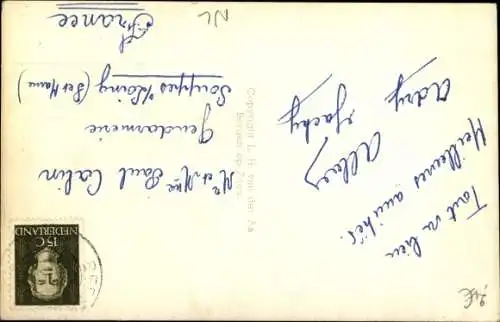 Tout va bien
Meilleures amitiés.
Albine
Jacky
Adry
Copyright L. H. van der
Bergen op Zoom
Mr et Mme Paul Colin
Gendarmerie
Souppes s/Loing (Set Marne)
France
NL
15 C
NEDERLAND